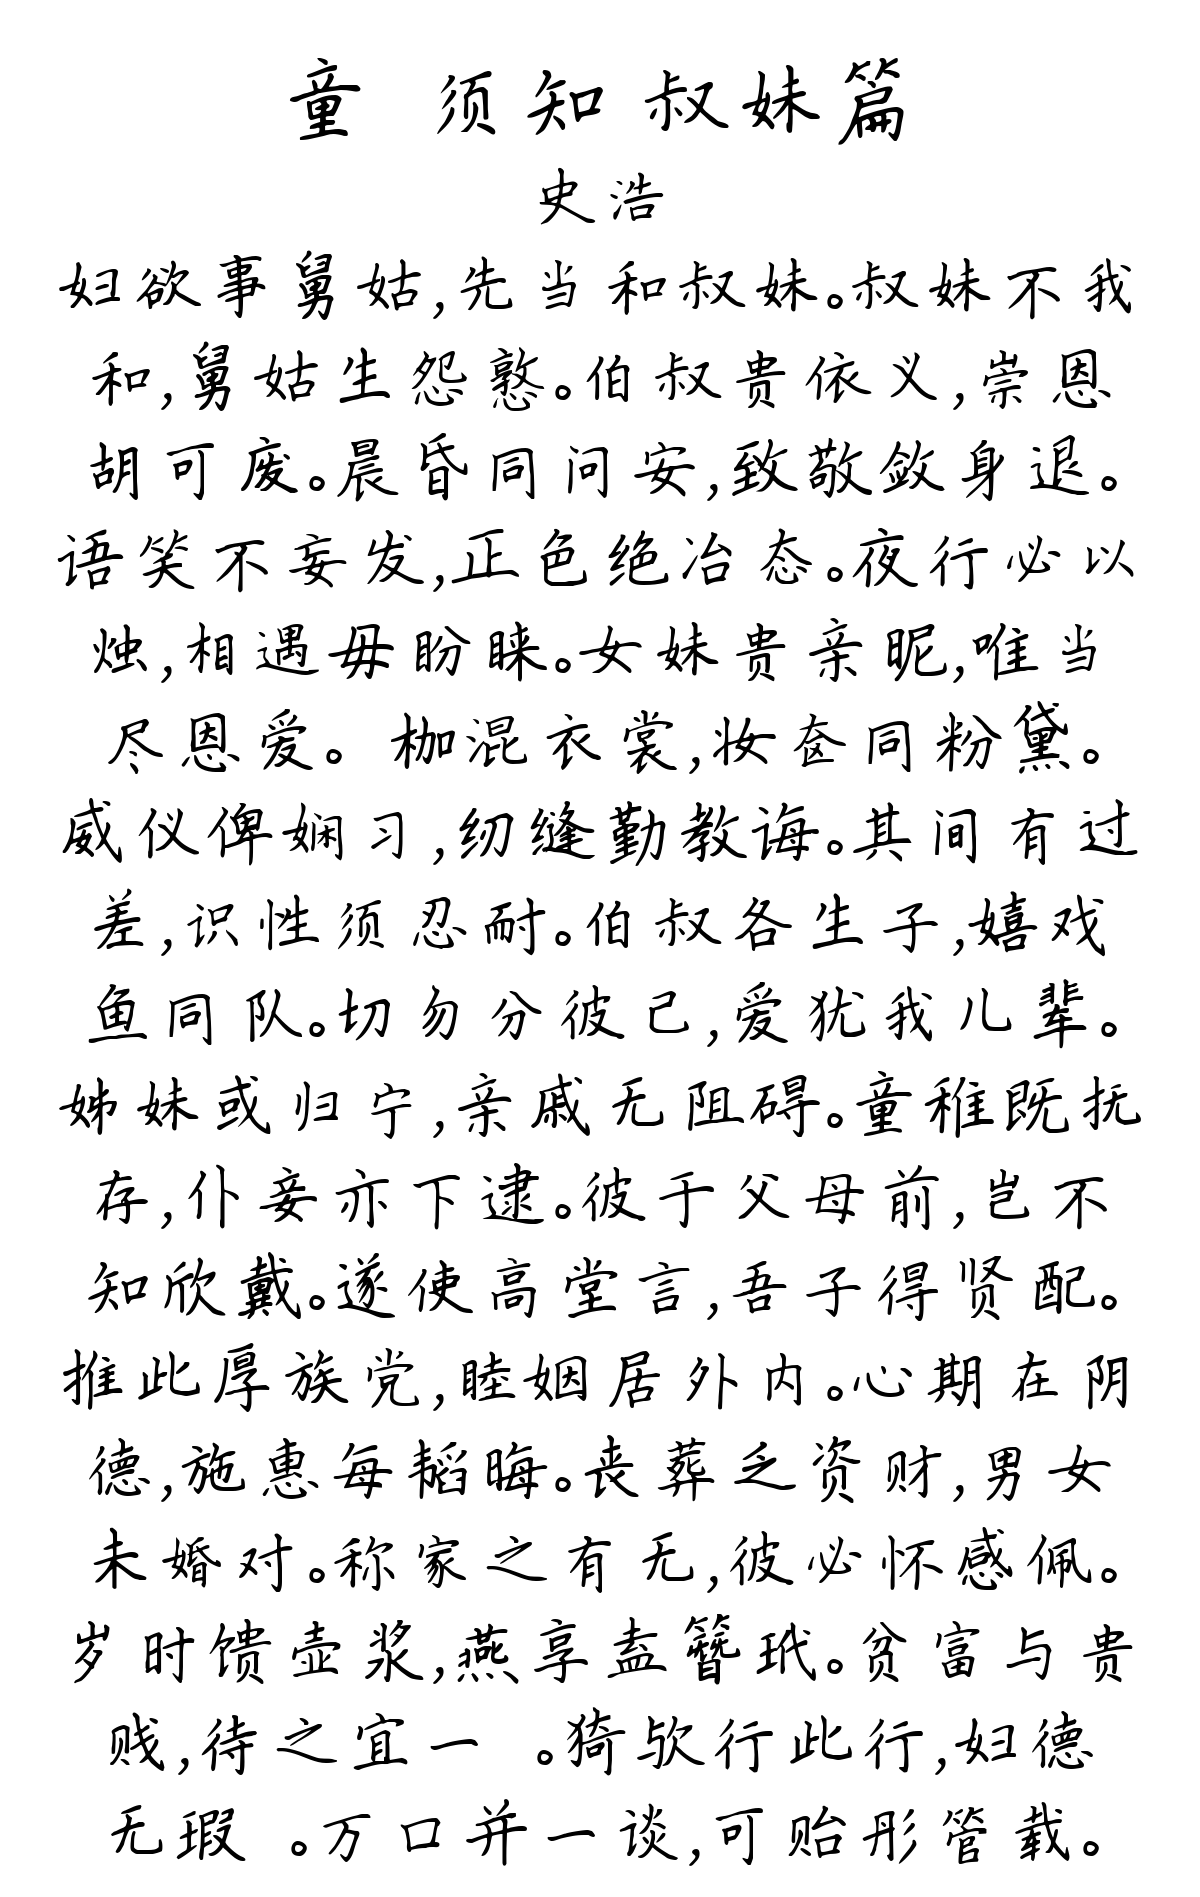 童 须知 叔妹篇
史浩
妇欲事舅姑,先当和叔妹。叔妹不我
和,舅姑生怨憝。伯叔贵依义,崇恩
胡可废。晨昏同问安,致敬敛身退。
语笑不妄发,正色绝冶态。夜行必以
烛,相遇毋盼睐。女妹贵亲昵,唯当
尽恩爱。枷混衣裳,妆奁同粉黛。
威仪俾娴习,纫缝勤教诲。其间有过
差,识性须忍耐。伯叔各生子,嬉戏
鱼同队。切勿分彼己,爱犹我儿辈。
姊妹或归宁,亲戚无阻碍。童稚既抚
存,仆妾亦下逮。彼于父母前,岂不
知欣戴。遂使高堂言,吾子得贤配。
推此厚族党,睦姻居外内。心期在阴
德,施惠每韬晦。丧葬乏资财,男女
未婚对。称家之有无,彼必怀感佩。
岁时馈壶浆,燕享盍簪玳。贫富与贵
贱,待之宜一 。猗欤行此行,妇德
无瑕 。万口并一谈,可贻彤管载。